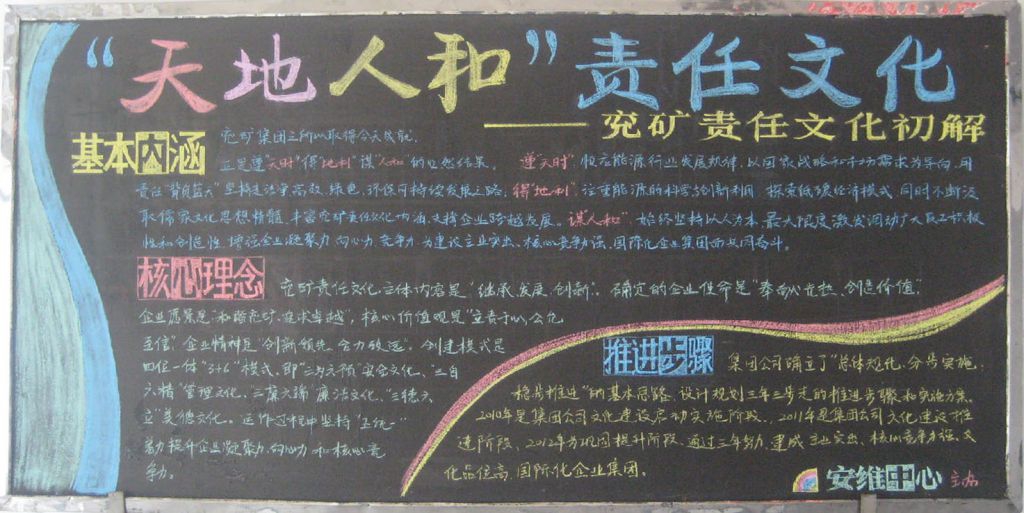 “天地人和”责任文化
——兖矿责任文化初解
基本内涵
兖矿集团之所以取得今天成就,
正是遵“天时”得“地利”谋“人和”的必然结果。 “遵天时”,顺应能源行业发展规律,以国家战略和市场需求为导向,用
责任“背负蓝天”坚持走洁净高效、绿色、环保可持续发展之路,“得地利”,注重能源的科学与创新利用 探索低碳经济模式 同时不断汲
取儒家文化思想精髓,丰富兖矿责任文化内涵,支撑企业跨越发展。“谋人和”始终坚持以人为本 最大限度激发调动广大员工积极
性和创造性 增强企业凝聚力 向心力 竞争力 为建设主业突出、核心竞争力强、国际化企业集团而共同奋斗。
核心理念
兖矿责任文化主体内容是“继承、发展、创新”。确定的企业使命是“奉献光热、创造价值”
企业愿景是“和谐兖矿、追求卓越”,核心价值观是“至责于心,公允
互信”企业精神是“创新领先 合力致远”。创建模式是
四位一体“3+6”模式,即“三为六预”安全文化、“三自
六精”管理文化、“三廉六端”廉洁文化、“三德六
立”美德文化。运作过程中坚持“五统一”
着力提升企业凝聚力、向心力和核心竞
争力。
推进步骤
集团公司确立了“总体规化、分步实施、
稳步推进”的基本思路,设计规划三年三步走的推进步骤和实施方案。
2010年是集团公司文化建设启动实施阶段、2011年是集团公司文化建设推
进阶段、2012年为巩固提升阶段 通过三年努力,建成主业突出、核心竞争力强、文
化品位高、国际化企业集团。
安维中心 主办